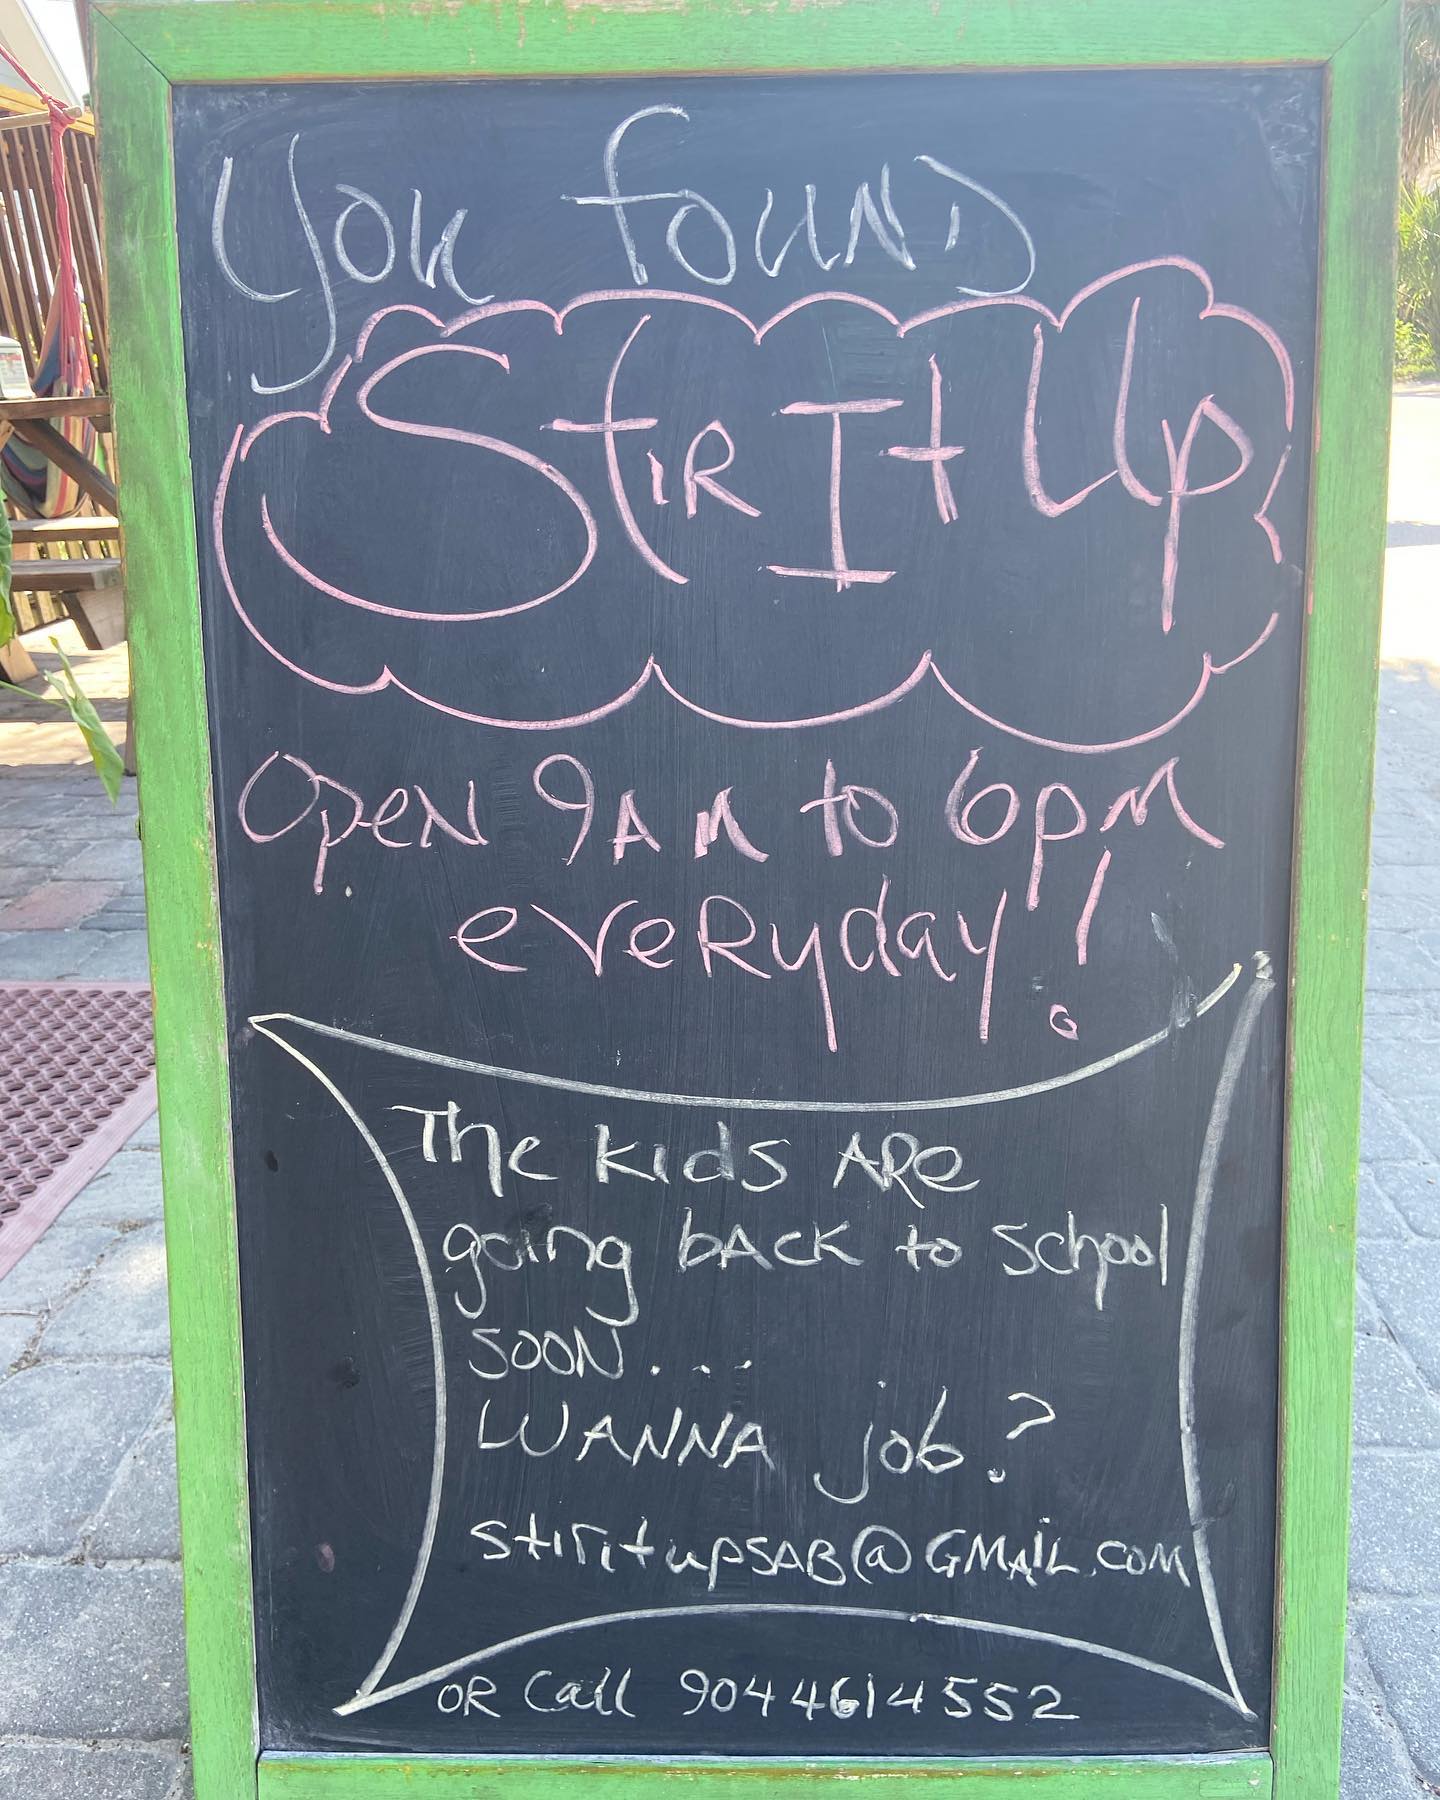 You found
Stir It Up
Open 9AM to 6pm
everyday!
The kids ARe
going bACK to School
SOON...
WANNA job?
stiritupSAB@GMAiL.COM
OR Call 9044614552